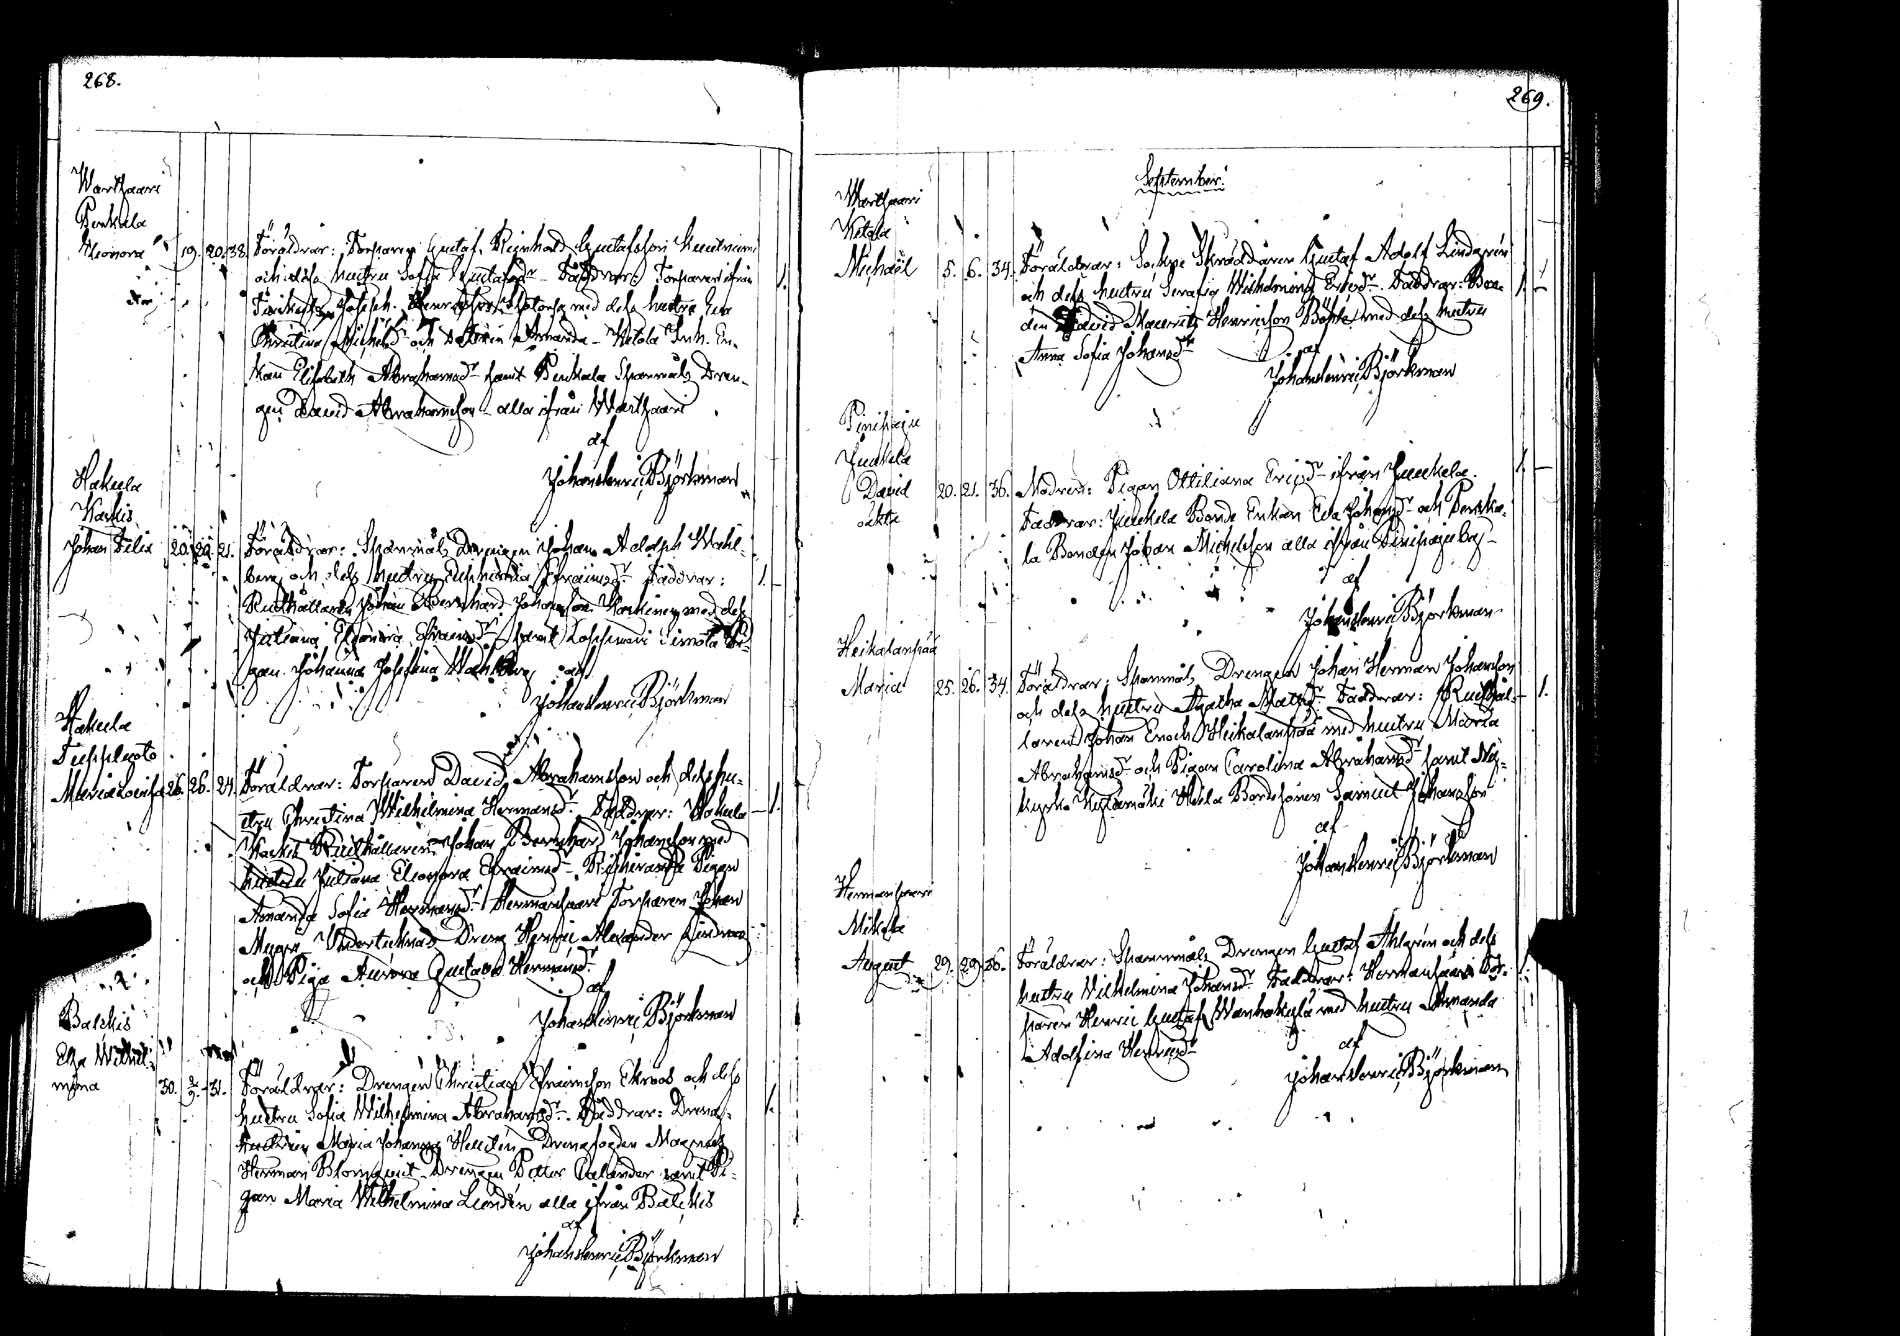 268.
Warthaari
Penkala
Eleonora 19. 20. 38. Föräldrar: Torparen Gustaf Reinhold Gustafsson
och dess hustru Sofia Gustafsdr. Faddrar: Torparen ifrån
Joseph Henricsson med dess hustru Eva
Christina Michelsdr och Dottren Amanda - Ketola Inh. En-
kan Elisabeth Abrahamsdr samt Penkala Spannmåls Dren-
gen David Abrahamsson - alla ifrån Warthaari
af
Johan Henric Björkman
Hakula
Kaskis
Johan Felix 20. 20. 21. Föräldrar: Spanmåls Drengen Johan Adolph Wahl-
berg och dess hustru Euphrosia Efraimsdr Faddrar: 1.
Rusthållaren Johan Bernhard Johansson Kaskinen med dess
Juliana Eleonora Efraimsdr samt Simola Pi-
gan Johanna Josefina Wahlberg af
Johan Henric Björkman
Hakula
Teppleoto
Maria Lovisa 26. 26. 24. Föräldrar: Torparen David Abrahamsson och dess hu-
stru Christina Wilhelmina Hermansdr. Faddrar: Hakula 1.
Kaskis Rusthållaren Johan Bernhard Johansson med
hustru Juliana Eleonora Efraimsdr - Pigan
Amanda Sofia Hermansdr Hermansaari Torparen Johan
Dreng Henric Alexander
och Piga Aurora Gustava Hermansdr.
af
Johan Henric Björkman
Balckis
Elsa Wilhel-
mina 30. 31. Föräldrar: Drengen Christian Efraimsson Ekroos och dess
hustru Sofia Wilhelmina Abrahamsdr. Faddrar: Dreng- 1.
hustrun Maria Johanna Drengfogden Magnus
Herman Blomqvist - Drengen Petter Calander samt Pi-
gan Maria Wilhelmina Lundén alla ifrån Balckis
af
Johan Henric Björkman
269.
September.
Warthaari
Ketola
Michaël 5. 6. 34. Föräldrar: Sockne Skräddaren Gustaf Adolf Lindgrén
och dess hustru Serafia Wilhelmina Ericsdr. Faddrar: Bon- 1.
den David Mauritz Henricsson med dess hustru
Anna Sofia Johansdr
af
Johan Henric Björkman
Pinipaju
Junkela
David 20. 21. 36. Modren: Pigan Ottiliana Ericsdr ifrån Junkela. 1.
oäkta Faddrar: Junkela Bonde Enkan Eva Johansdr och Penka-
la Bonden Johan Michelsson alla ifrån Pinipaju by
af
Johan Henric Björkman
Heikalanpää
Maria 25. 26. 34. Föräldrar: Spanmåls Drengen Johan Herman Johansson
och dess hustru Agatha Mathsdr. Faddrar: Rusthål- 1.
laren Johan Enoch Heikalanpää med hustru Maria
Abrahamsdr och Pigan Carolina Abrahamsdr samt Ny-
kyrko Kylämäki Heila Bondesonen Samuel Johansson
af
Johan Henric Björkman
Hermansaari
Mikola
August 29. 29. 36. Föräldrar: Spannmåls Drengen Gustaf Ahlgrén och dess
hustru Wilhelmina Johansdr. Faddrar: Hermansaari Tor-
paren Henric Gustaf Wanhakylä med hustru Amanda
Adolfina Henricsdr
af
Johan Henric Björkman